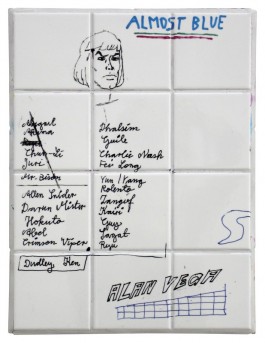 ALMOST BLUE
Abigail
Akuma
Chun-Li
Juri
Mr. Bison
Allen Snider
Darun Mister
Hokuto
Blool
Crimson Viper
Dudley Ken
Dhalsim
Guile
Charlie Nash
Fei Long
Yun/Yang
Rolento
Zangief
Kairi
Guy
Sagat
Ryu
ALAN VEGA